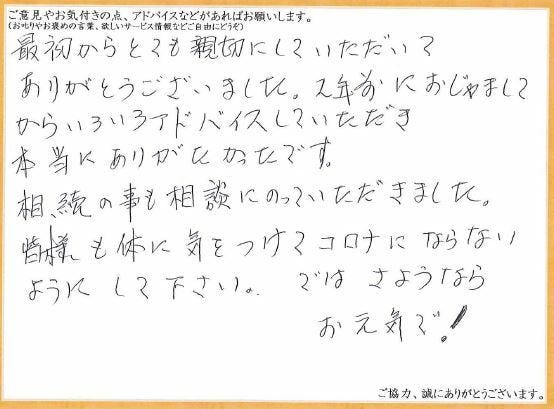 ご意見やお気付きの点、アドバイスなどがあればお願いします。
(お叱りやお褒めの言葉、欲しいサービス情報などご自由にどうぞ)
最初からとても親切にしていただいて
ありがとうございました。2年前におじゃまして
からいろいろアドバイスしていただき
本当にありがたかったです。
相続の事も相談にのっていただきました。
皆様も体に気をつけてコロナにならない
ようにして下さい。ではさようなら
お元気で!
ご協力、誠にありがとうございます。